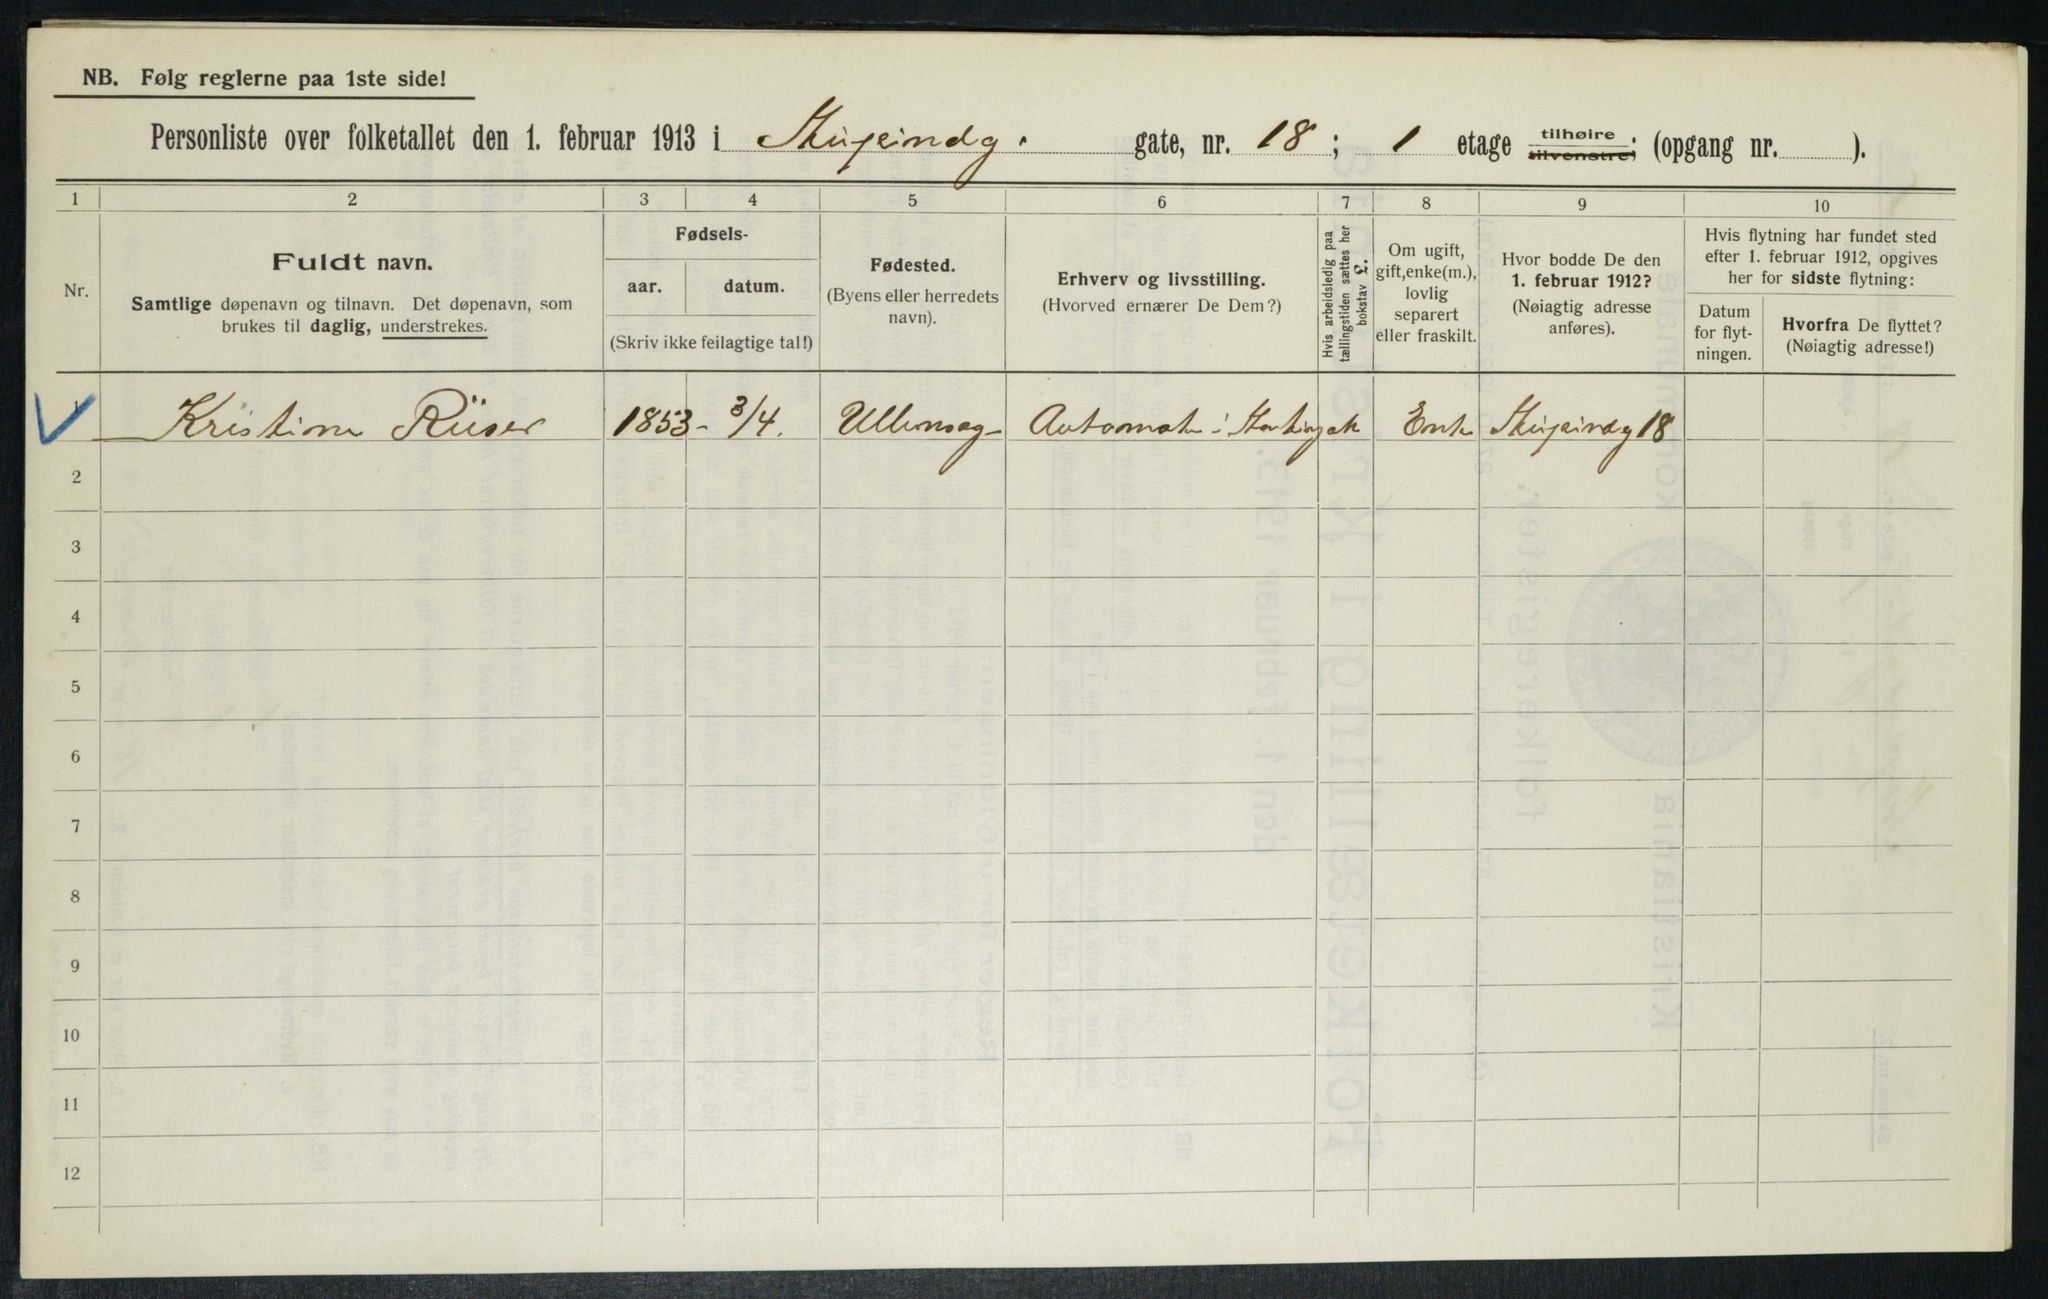 NB. Følg reglerne paa 1ste side!
Personliste over folketallet den 1. februar 1913 i gate, nr. 18; 1 etage tilhøire tilvenstre; (opgang nr. ).
1 2 3 4 5 6 7 8 9 10
Nr.
Fuldt navn.
Samtlige døpenavn og tilnavn. Det døpenavn, som
brukes til daglig, understrekes.
Fødsels-
aar. datum.
(Skriv ikke feilagtige tal!)
Fødested.
(Byens eller herredets
navn).
Erhverv og livsstilling.
(Hvorved ernærer De Dem?)
Hvis arbeidsledig paa
tællingstiden sættes her
bokstav L.
Om ugift,
gift, enke(m.),
lovlig
separert
eller fraskilt.
Hvor bodde De den
1. februar 1912?
(Nøiagtig adresse
anføres).
Hvis flytning har fundet sted
efter 1. februar 1912, opgives
her for sidste flytning:
Datum
for flyt-
ningen.
Hvorfra De flyttet?
(Nøiagtig adresse!)
1 Kristine Rüser 1853 - 3/4. Ullensag- Enke 18
2
3
4
5
6
7
8
9
10
11
12